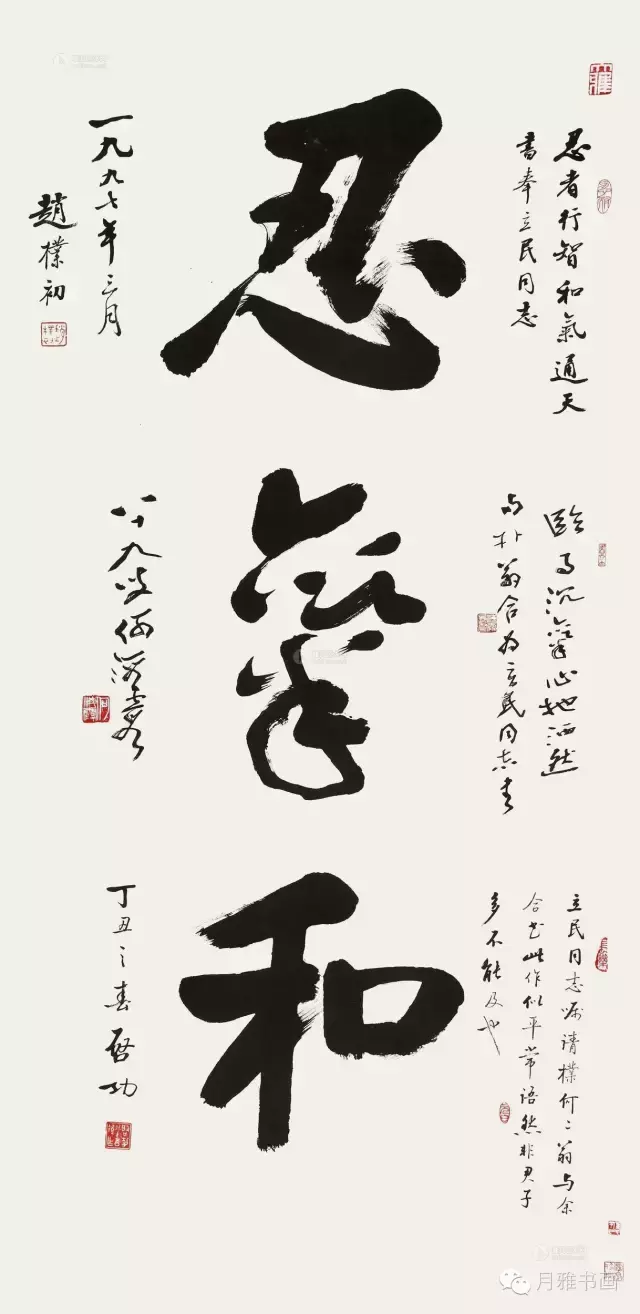 忍者行智和氣通天
書奉立民同志
忍
一九九七年三月
趙樸初
臨事沉氣心地洒然
与朴翁合为立民同志书
氣
八十九叟何海霞
立民同志嘱请樸何二翁与余
合书此作似平常语然非君子
多不能及也
和
丁丑之春啓功
月雅书画